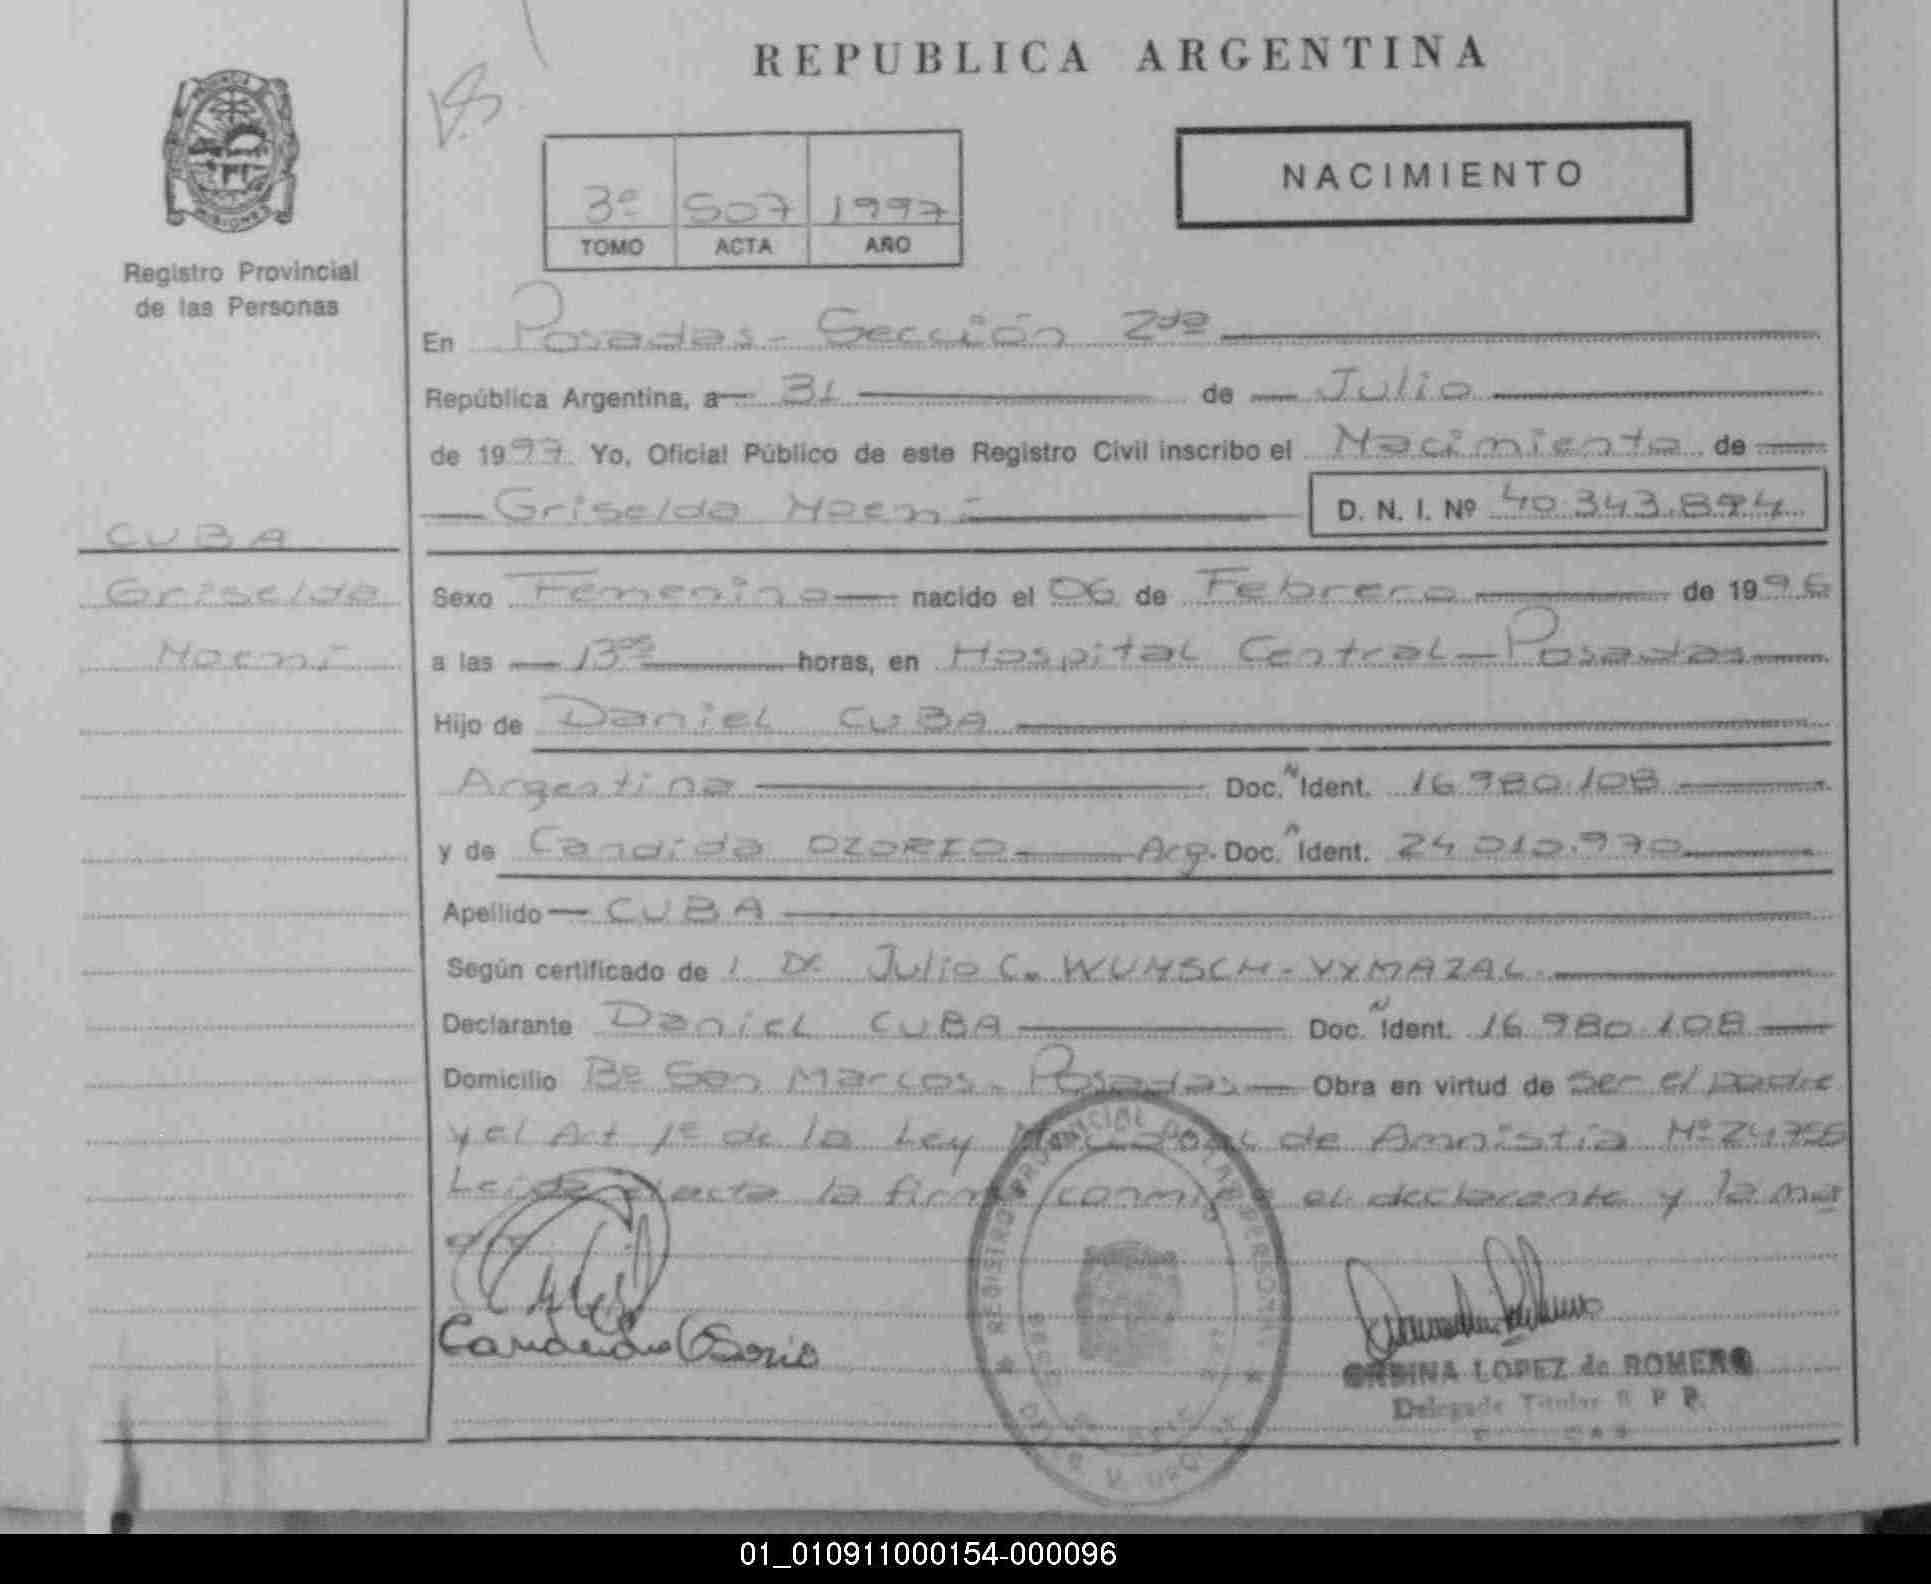 REPUBLICA ARGENTINA
NACIMIENTO
3º 507 1997
TOMO ACTA AÑO
MISIONES
Registro Provincial
de las Personas
En Posadas - Sección 2da
República Argentina, a 31 de Julio
de 1997 Yo, Oficial Público de este Registro Civil inscribo el Nacimiento de
Griselda Noemí D. N. I. Nº 40.343.894
CUBA
Griselda
Noemí
Sexo Femenino nacido el 06 de Febrero de 1996
a las 13 horas, en Hospital Central - Posadas
Hijo de Daniel CUBA
Argentina Doc. N Ident. 16.980.108
y de Candida OZORIO Arg. Doc. Ident. 24.010.970
Apellido CUBA
Según certificado de Dr Julio C. WUNSCH - VYMAZAL
Declarante Daniel CUBA Doc. N Ident. 16.980.108
Domicilio Bº San Marcos - Posadas Obra en virtud de ser el padre
y el Art 1º de la Ley Nacional de Amnistía Nº 24.755
Leida el acta la firma conmigo el declarante y la ma
dre
REGISTRO PROVINCIAL DE LAS PERSONAS
LOPEZ de ROMERO
Delegado Titular R P P.
01_010911000154-000096